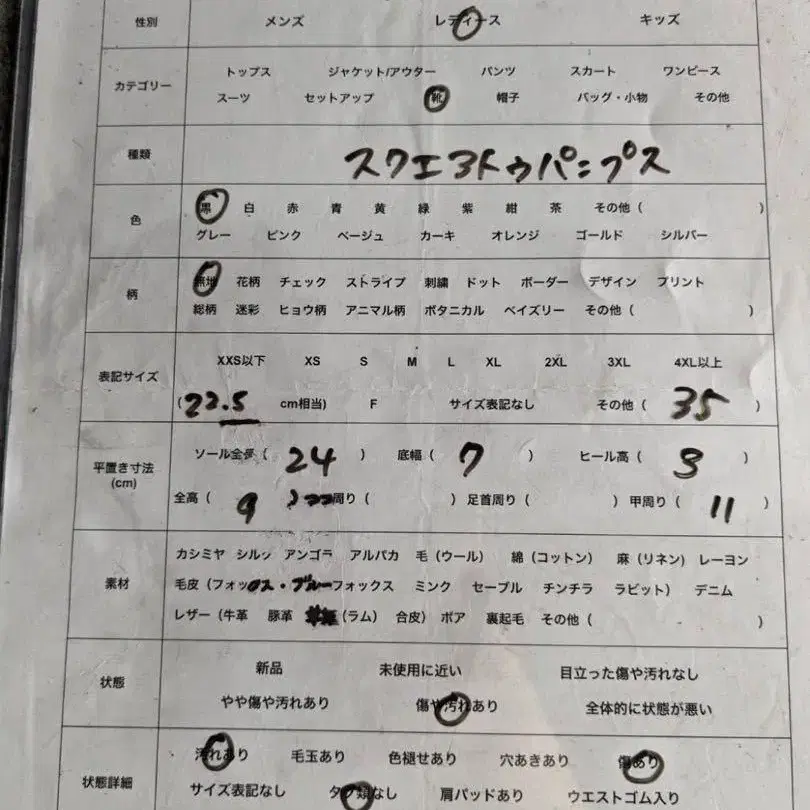 性別 メンズ レディース キッズ
カテゴリー トップス ジャケット/アウター パンツ スカート ワンピース
スーツ セットアップ 靴 帽子 バッグ・小物 その他
種類 スクエアトゥパンプス
色 黒 白 赤 青 黄 緑 紫 紺 茶 その他（ ）
グレー ピンク ベージュ カーキ オレンジ ゴールド シルバー
柄 無地 花柄 チェック ストライプ 刺繍 ドット ボーダー デザイン プリント
総柄 迷彩 ヒョウ柄 アニマル柄 ボタニカル ペイズリー その他（ ）
表記サイズ XXS以下 XS S M L XL 2XL 3XL 4XL以上
（22.5 cm相当） F サイズ表記なし その他（ 35 ）
平置き寸法 (cm) ソール全長（ 24 ） 底幅（ 7 ） ヒール高（ 3 ）
全高（ 9 周り（ ） 足首周り（ ） 甲周り（ 11 ）
素材 カシミヤ シルク アンゴラ アルパカ 毛（ウール） 綿（コットン） 麻（リネン） レーヨン
毛皮（フォックス・ブルーフォックス ミンク セーブル チンチラ ラビット） デニム
レザー（牛革 豚革 （ラム） 合皮） ボア 裏起毛 その他（ ）
状態 新品 未使用に近い 目立った傷や汚れなし
やや傷や汚れあり 傷や汚れあり 全体的に状態が悪い
状態詳細 汚れあり 毛玉あり 色褪せあり 穴あきあり 傷あり
サイズ表記なし タグ類なし 肩パッドあり ウエストゴム入り